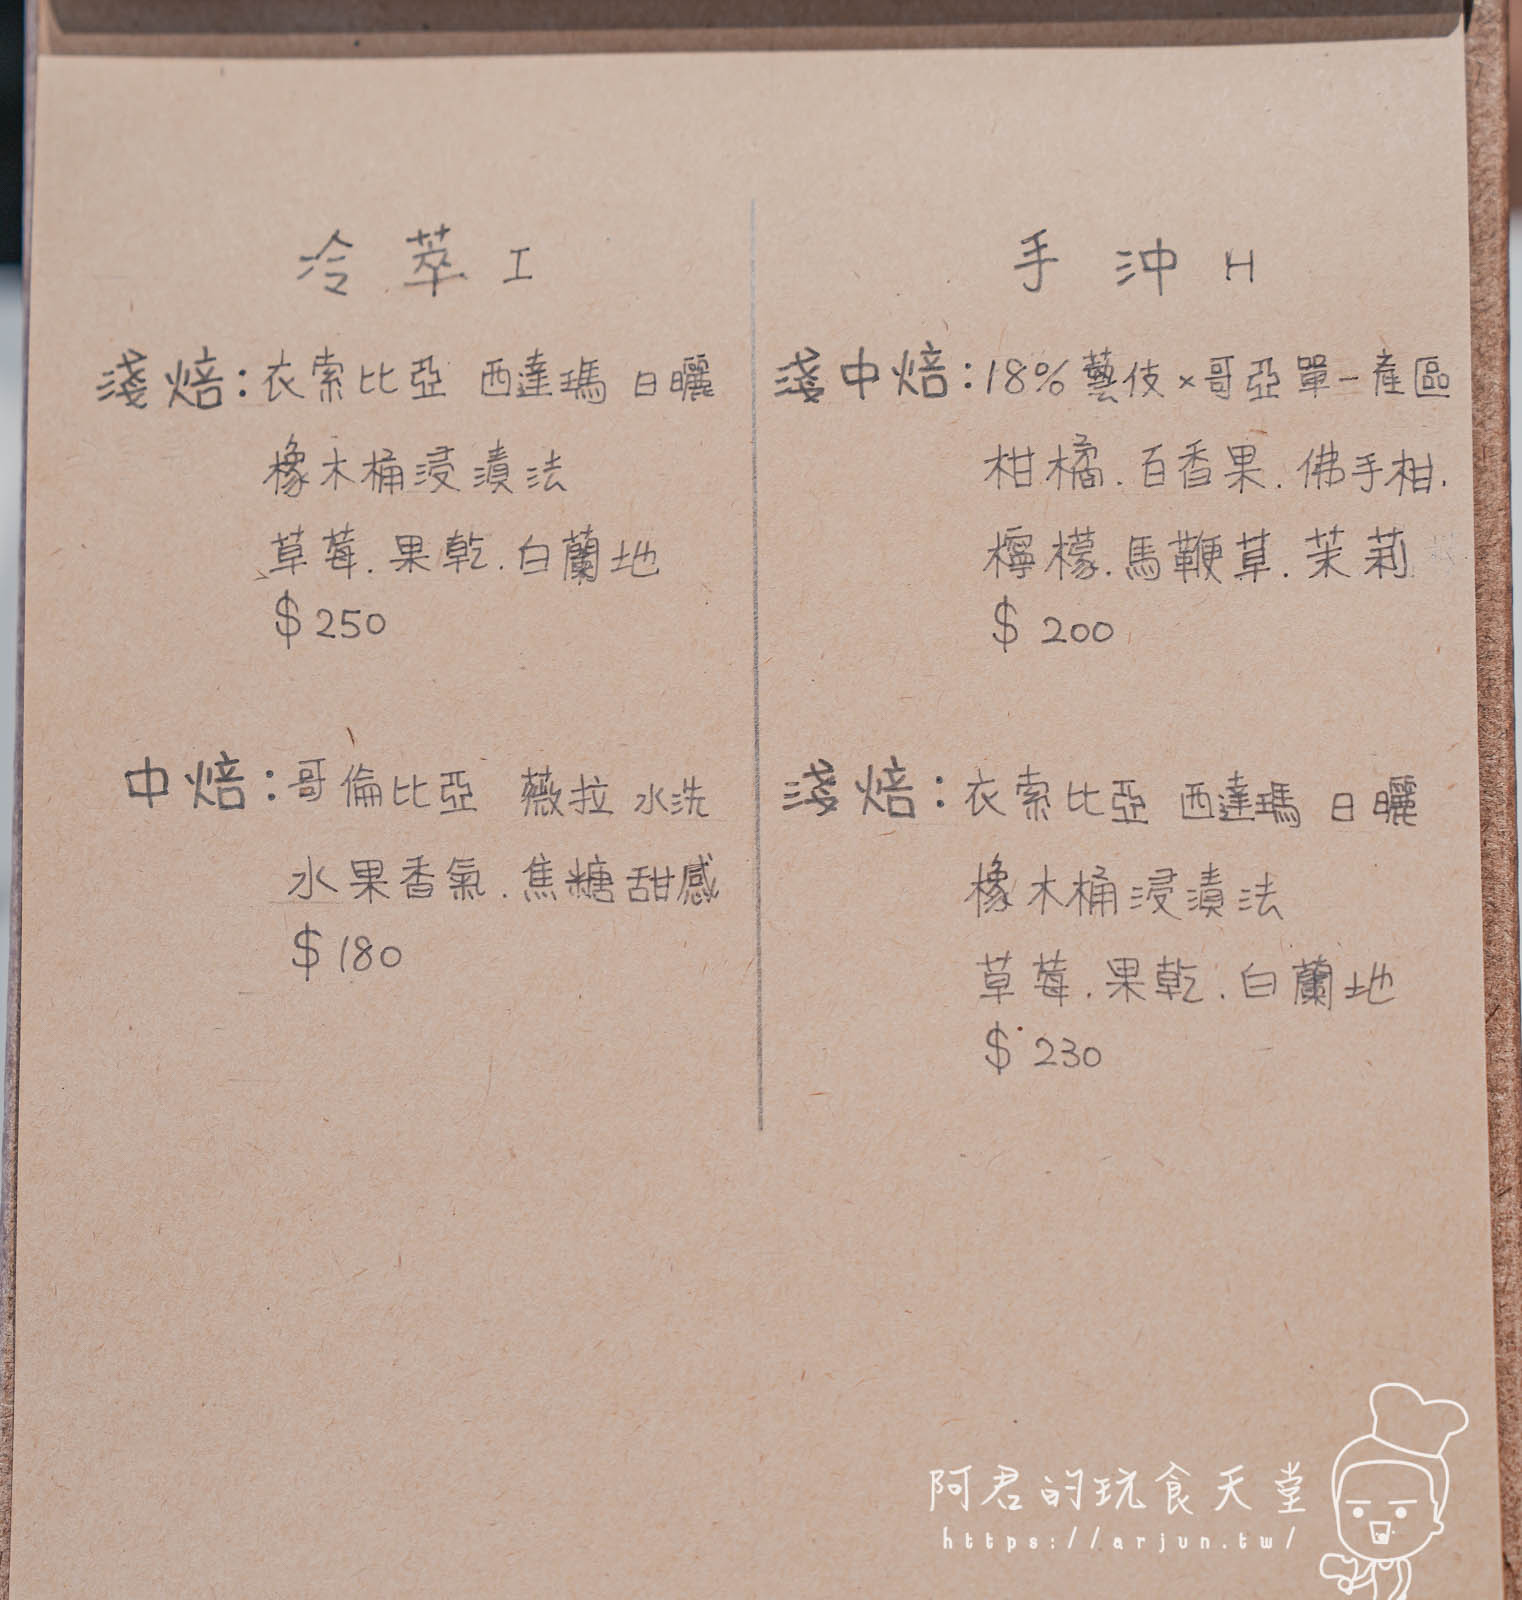 冷萃 I
淺焙：衣索比亞 西達瑪 日曬
橡木桶浸漬法
草莓.果乾.白蘭地
$250
中焙：哥倫比亞 薇拉 水洗
水果香氣.焦糖甜感
$180
手沖 H
淺中焙：18%藝伎×哥亞單一產區
柑橘.百香果.佛手柑.
檸檬.馬鞭草.茉莉
$200
淺焙：衣索比亞 西達瑪 日曬
橡木桶浸漬法
草莓.果乾.白蘭地
$230
阿君的玩食天堂
https://arjun.tw/